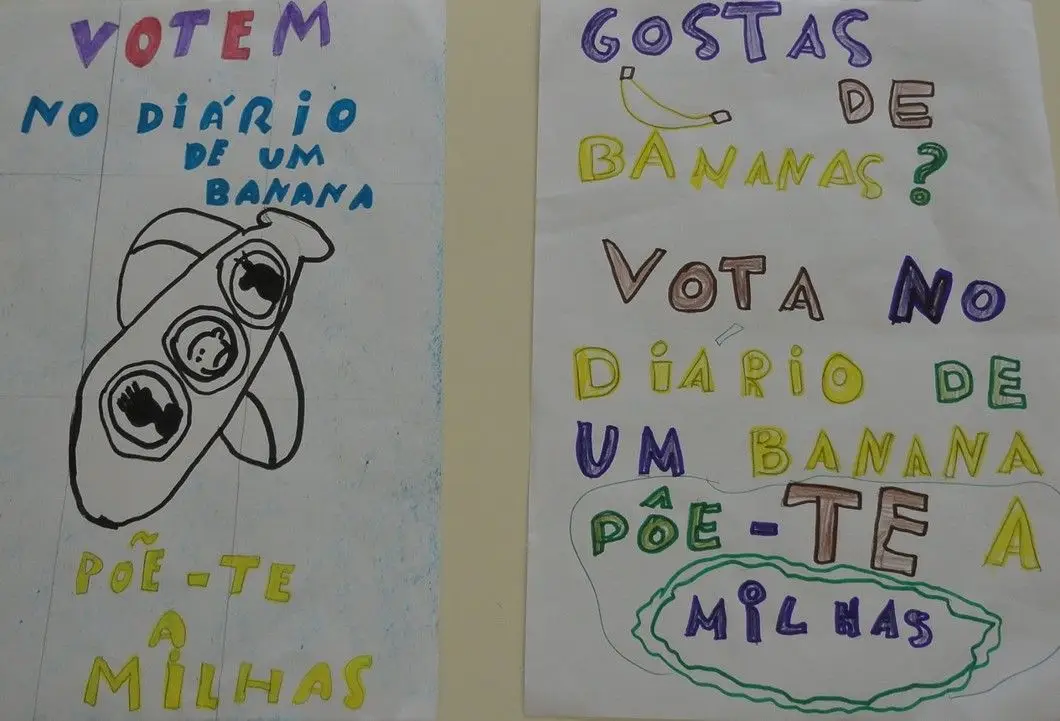 VOTEM
NO DIÁRIO
DE UM
BANANA
PÕE-TE
A
MILHAS
GOSTAS
DE
BANANAS?
VOTA NO
DIÁRIO DE
UM BANANA
PÔE-TE A
MILHAS